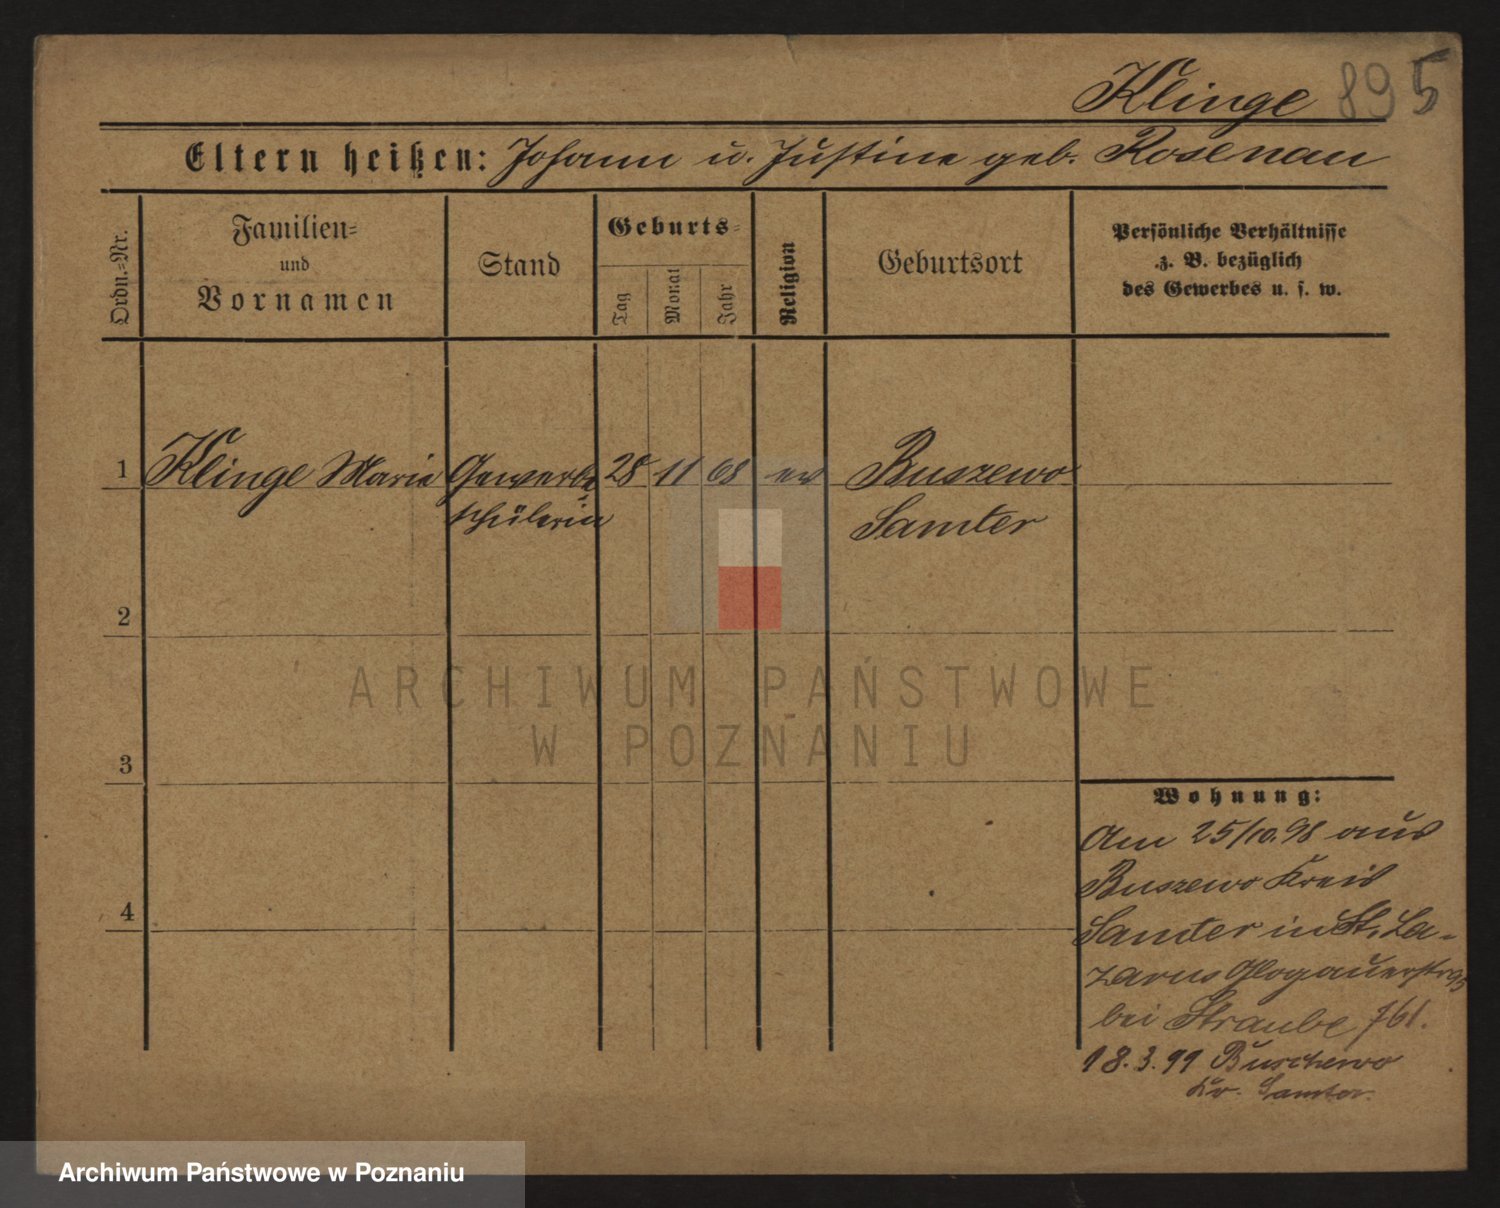 Klinge 895
Eltern heißen: Johann u. Justine geb. Rosenau
Ordn.-Nr.
Familien-
und
Vornamen
Stand
Geburts-
Tag
Monat
Jahr
Religion
Geburtsort
Persönliche Verhältnisse
z. B. bezüglich
des Gewerbes u. s. w.
1 Klinge Marie Gewerbe 28 11 68 ev Buszewo
schülerin Samter
2
3
4
Wohnung:
Am 25/10.98 aus
Buszewo Kreis
Samter in St. La-
zarus Glogauerstr 95
bei Straube
18.3.99 Buschewo
Kr. Samter.
ARCHIWUM PAŃSTWOWE
W POZNANIU
Archiwum Państwowe w Poznaniu